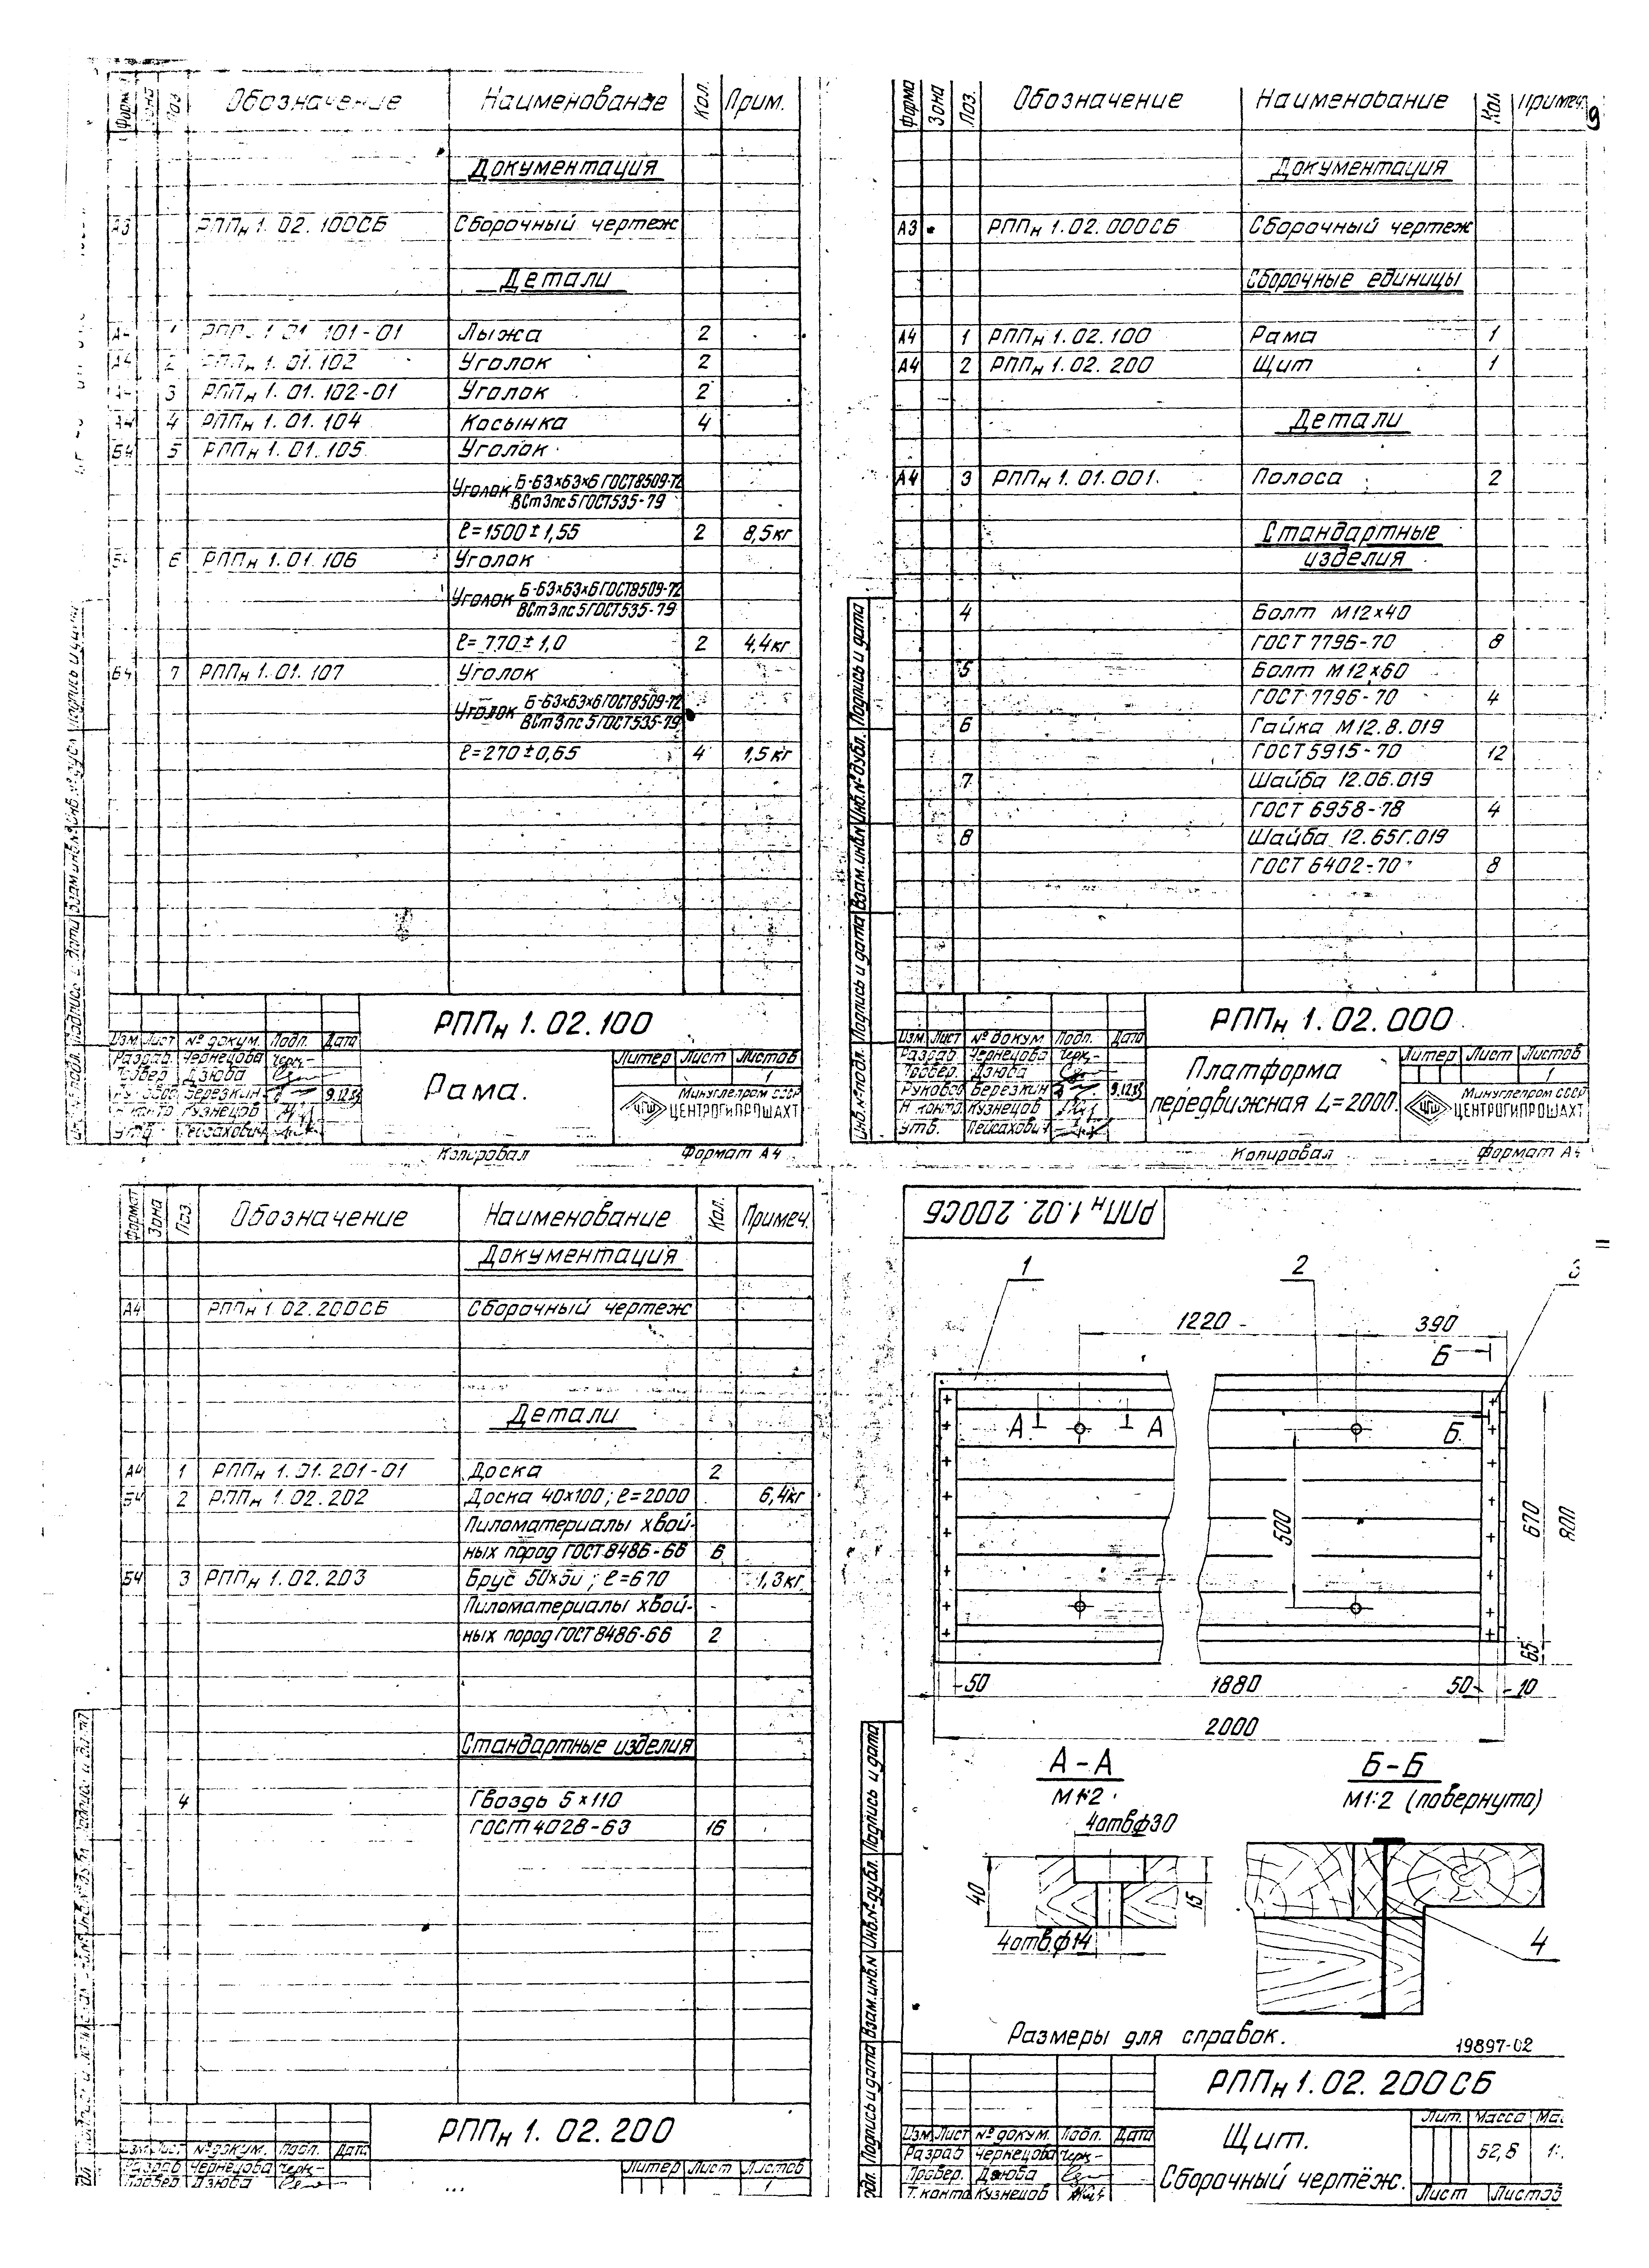 Форм. Зона Поз. Обозначение Наименование Кол. Прим.
Документация
А3 РППн 1.02.100СБ Сборочный чертеж
Детали
А4 1 РППн 1.01.101-01 Лыжа 2
А4 2 РППн 1.01.102 Уголок 2
А4 3 РППн 1.01.102-01 Уголок 2
А4 4 РППн 1.01.104 Косынка 4
Б4 5 РППн 1.01.105 Уголок
Уголок Б-63х63х6 ГОСТ8509-72
ВСт3пс5 ГОСТ535-79
ℓ=1500±1,55 2 8,5кг
Б4 6 РППн 1.01.106 Уголок
Уголок Б-63х63х6 ГОСТ8509-72
ВСт3пс5 ГОСТ535-79
ℓ=770±1,0 2 4,4кг
Б4 7 РППн 1.01.107 Уголок
Уголок Б-63х63х6 ГОСТ8509-72
ВСт3пс5 ГОСТ535-79
ℓ=270±0,65 4 1,5кг
РППн 1.02.100
Изм. Лист № докум. Подп. Дата
Разраб. Чернецова
Провер. Дзюба
Руковод Березкин 9.12.83
Н контр Кузнецов
Утв. Пейсахович
Рама.
Литер Лист Листов
1
Минуглепром СССР
ЦЕНТРОГИПРОШАХТ
Копировал Формат А4
Форма Зона Поз. Обозначение Наименование Кол Примеч.
9
Документация
А3 РППн 1.02.000СБ Сборочный чертеж
Сборочные единицы
А4 1 РППн 1.02.100 Рама 1
А4 2 РППн 1.02.200 Щит 1
Детали
А4 3 РППн 1.01.001. Полоса 2
Стандартные
изделия
4 Болт М12х40
ГОСТ 7796-70 8
5 Болт М12х60
ГОСТ 7796-70 4
6 Гайка М12.8.019
ГОСТ 5915-70 12
7 Шайба 12.06.019
ГОСТ 6958-78 4
8 Шайба 12.65Г.019
ГОСТ 6402-70 8
Инв.№подл. Подпись и дата Взам.инв.№ Инв.№дубл. Подпись и дата
РППн 1.02.000
Изм. Лист № докум Подп. Дата
Разраб. Чернецова
Провер. Дзюба
Руковод Березкин 9.12.83
Н контр. Кузнецов
Утв. Пейсахович
Платформа
передвижная L=2000.
Литер Лист Листов
1
Минуглепром СССР
ЦЕНТРОГИПРОШАХТ
Копировал Формат А4
Формат Зона Поз. Обозначение Наименование Кол. Примеч.
Документация
А4 РППн 1.02.200СБ Сборочный чертеж
Детали
А4 1 РППн 1.01.201-01 Доска 2
Б4 2 РППн 1.02.202 Доска 40х100; ℓ=2000 6,4кг
Пиломатериалы хвой-
ных пород ГОСТ8486-66 6
Б4 3 РППн 1.02.203 Брус 50х50; ℓ=670 1,3кг
Пиломатериалы хвой-
ных пород ГОСТ8486-66 2
Стандартные изделия
4 Гвоздь 5х110
ГОСТ4028-63 16
РППн 1.02.200
Изм Лист №докум. Подп. Дата
Разраб Чернецова
Провер. Дзюба
Литер Лист Листов
1
РППн 1.02.200СБ
1 2 3
1220 390
Б
А А
Б
500 670 800
65
50 1880 50 10
2000
А-А
М1:2
4отв.ф30
40 15
4отв.ф14
Б-Б
М1:2 (повернуто)
4
Размеры для справок.
19897-02
Подпись и дата Взам.инв.№ Инв.№дубл. Подпись и дата
РППн 1.02.200СБ
Изм Лист №докум. Подп. Дата
Разраб Чернецова
Провер. Дзюба
Т.контр Кузнецов
Щит.
Сборочный чертёж.
Лит. Масса
52,6
Лист Листов